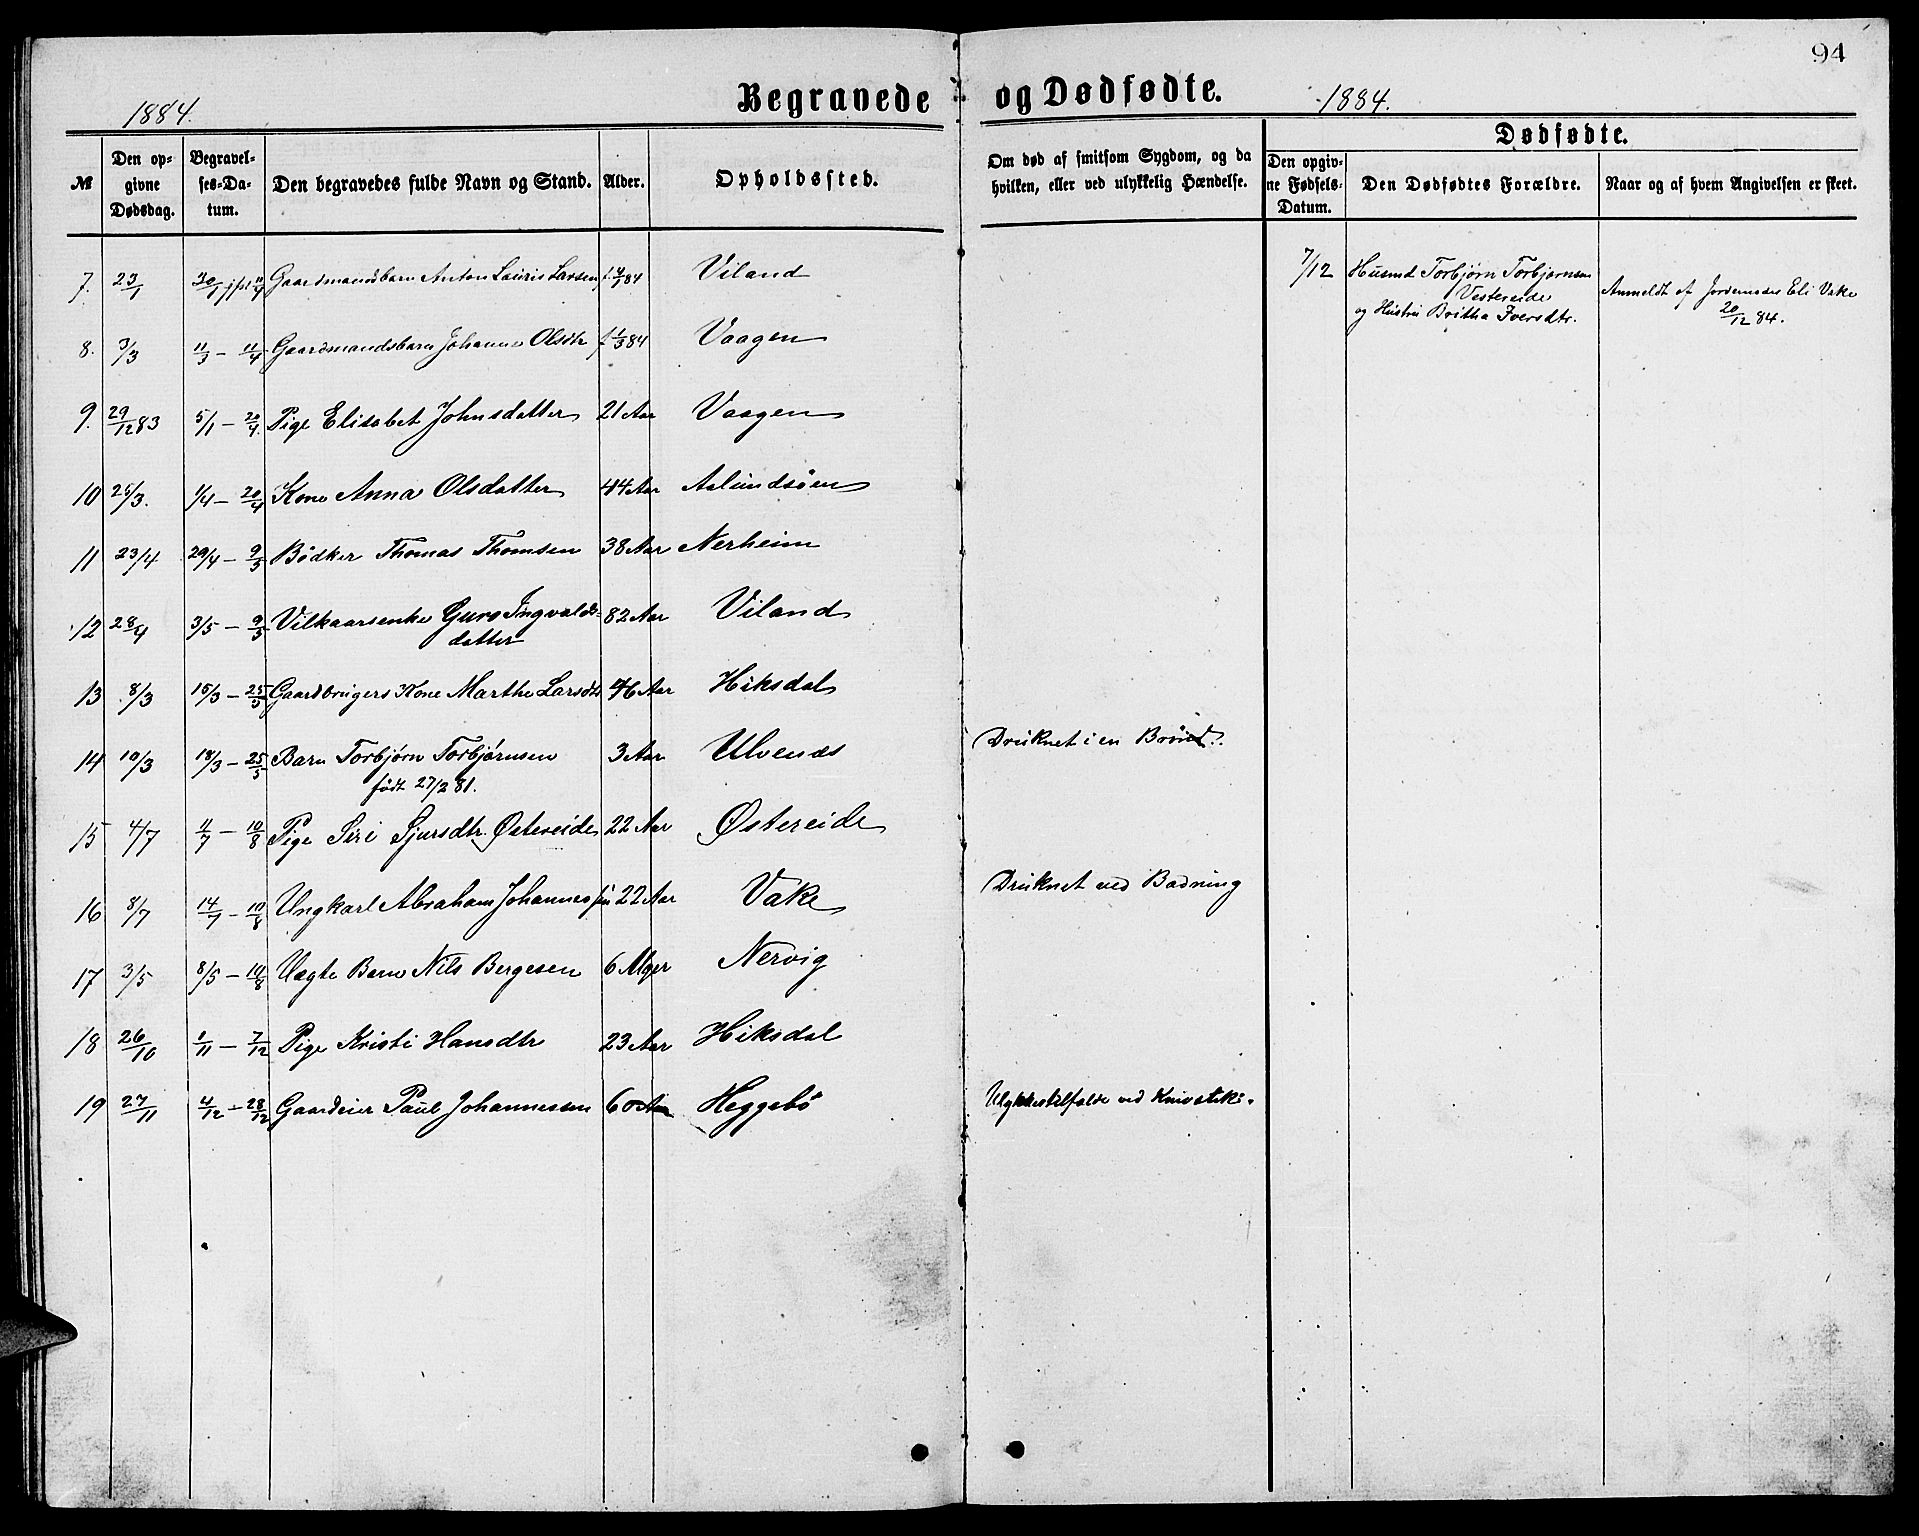 94
1884. Begravede og Dødfødte. 1884.
Dødfødte.
№ Den opgivne Dødsdag. Begravelses-Datum. Den begravedes fulde Navn og Stand. Alder. Opholdssted. Om død af smitsom Sygdom, og da hvilken, eller ved ulykkelig Hændelse. Den opgivne Fødsels-Datum. Den Dødfødtes Forældre. Naar og af hvem Angivelsen er skeet.
7. 23/1 30/1 jfst 11/4 Gaardmandsbarn Anton Lauris Larsen f. 4/1 84 Viland
7/12 Husmd Torbjørn Torbjørnsen
Vestereide
og Hustru Britha Iversdtr.
Anmeldt af Jordemoder Eli Vake
20/12 84.
8. 3/3 11/3 – 11/4 Gaardmandsbarn Johanne Olsdtr f 1/3 84 Vaagen
9. 29/12 83 5/1 – 20/4 Pige Elisabet Johnsdatter 21 Aar Vaagen
10 25/3. 1/4 – 20/4 Kone Anna Olsdatter 44 Aar Aalundsöen
11 23/4 29/4 – 9/5 Bödker Thomas Thomsen 38 Aar Nerheim
12 28/4 3/5 – 9/5 Vilkaarsenke Guro Ingvalds-
datter 82 Aar Viland
13 8/3 15/3 – 25/5 Gaardbrugers Kone Marthe Larsdtr 46 Aar Hiksdal
14 10/3 18/3 – 25/5 Barn Torbjørn Torbjørnsen 3 Aar Ulvenæs Druknet i en Brönd.
födt 27/2 81.
15 4/7 11/7 – 10/8 Pige Siri Sjursdtr. Østereide 22 Aar Østereide
16 8/7 14/7 – 10/8 Ungkarl Abraham Johannessen 22 Aar Vake Druknet ved Badning
17 3/5 8/5 – 10/8 Uægte Barn Nils Bergesen 6 Uger Nervig
18 26/10 1/11 – 7/12 Pige Kristi Hansdtr 23 Aar Hiksdal
19 27/11 4/12 – 28/12 Gaardeier Paul Johannessen 60 Aar Heggebö Ulykkestilfælde ved Knivstik.